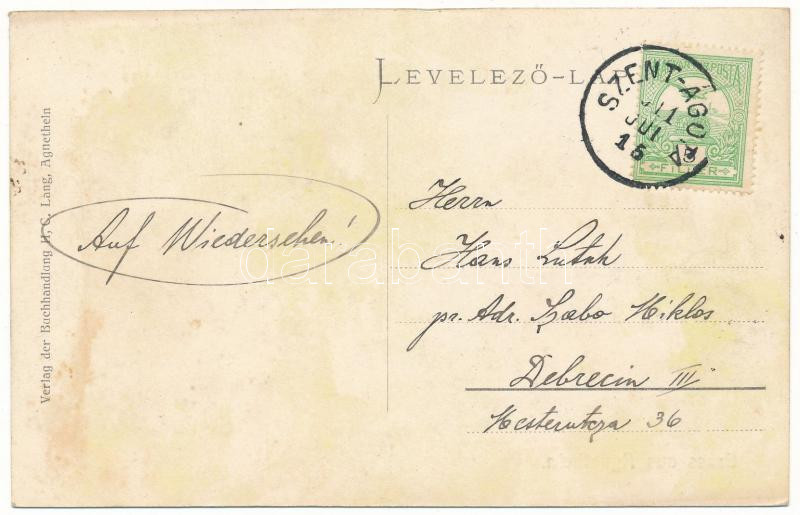 LEVELEZŐ-LAP
SZENT-ÁGOTA
POSTA
FILLÉR
Verlag der Buchhandlung H. C. Lang, Agnetheln
Auf Wiedersehen!
Herrn
Hans
pr. Adr. Szabo Miklos
Debrecin III
Mesterutcza 36
darabanth